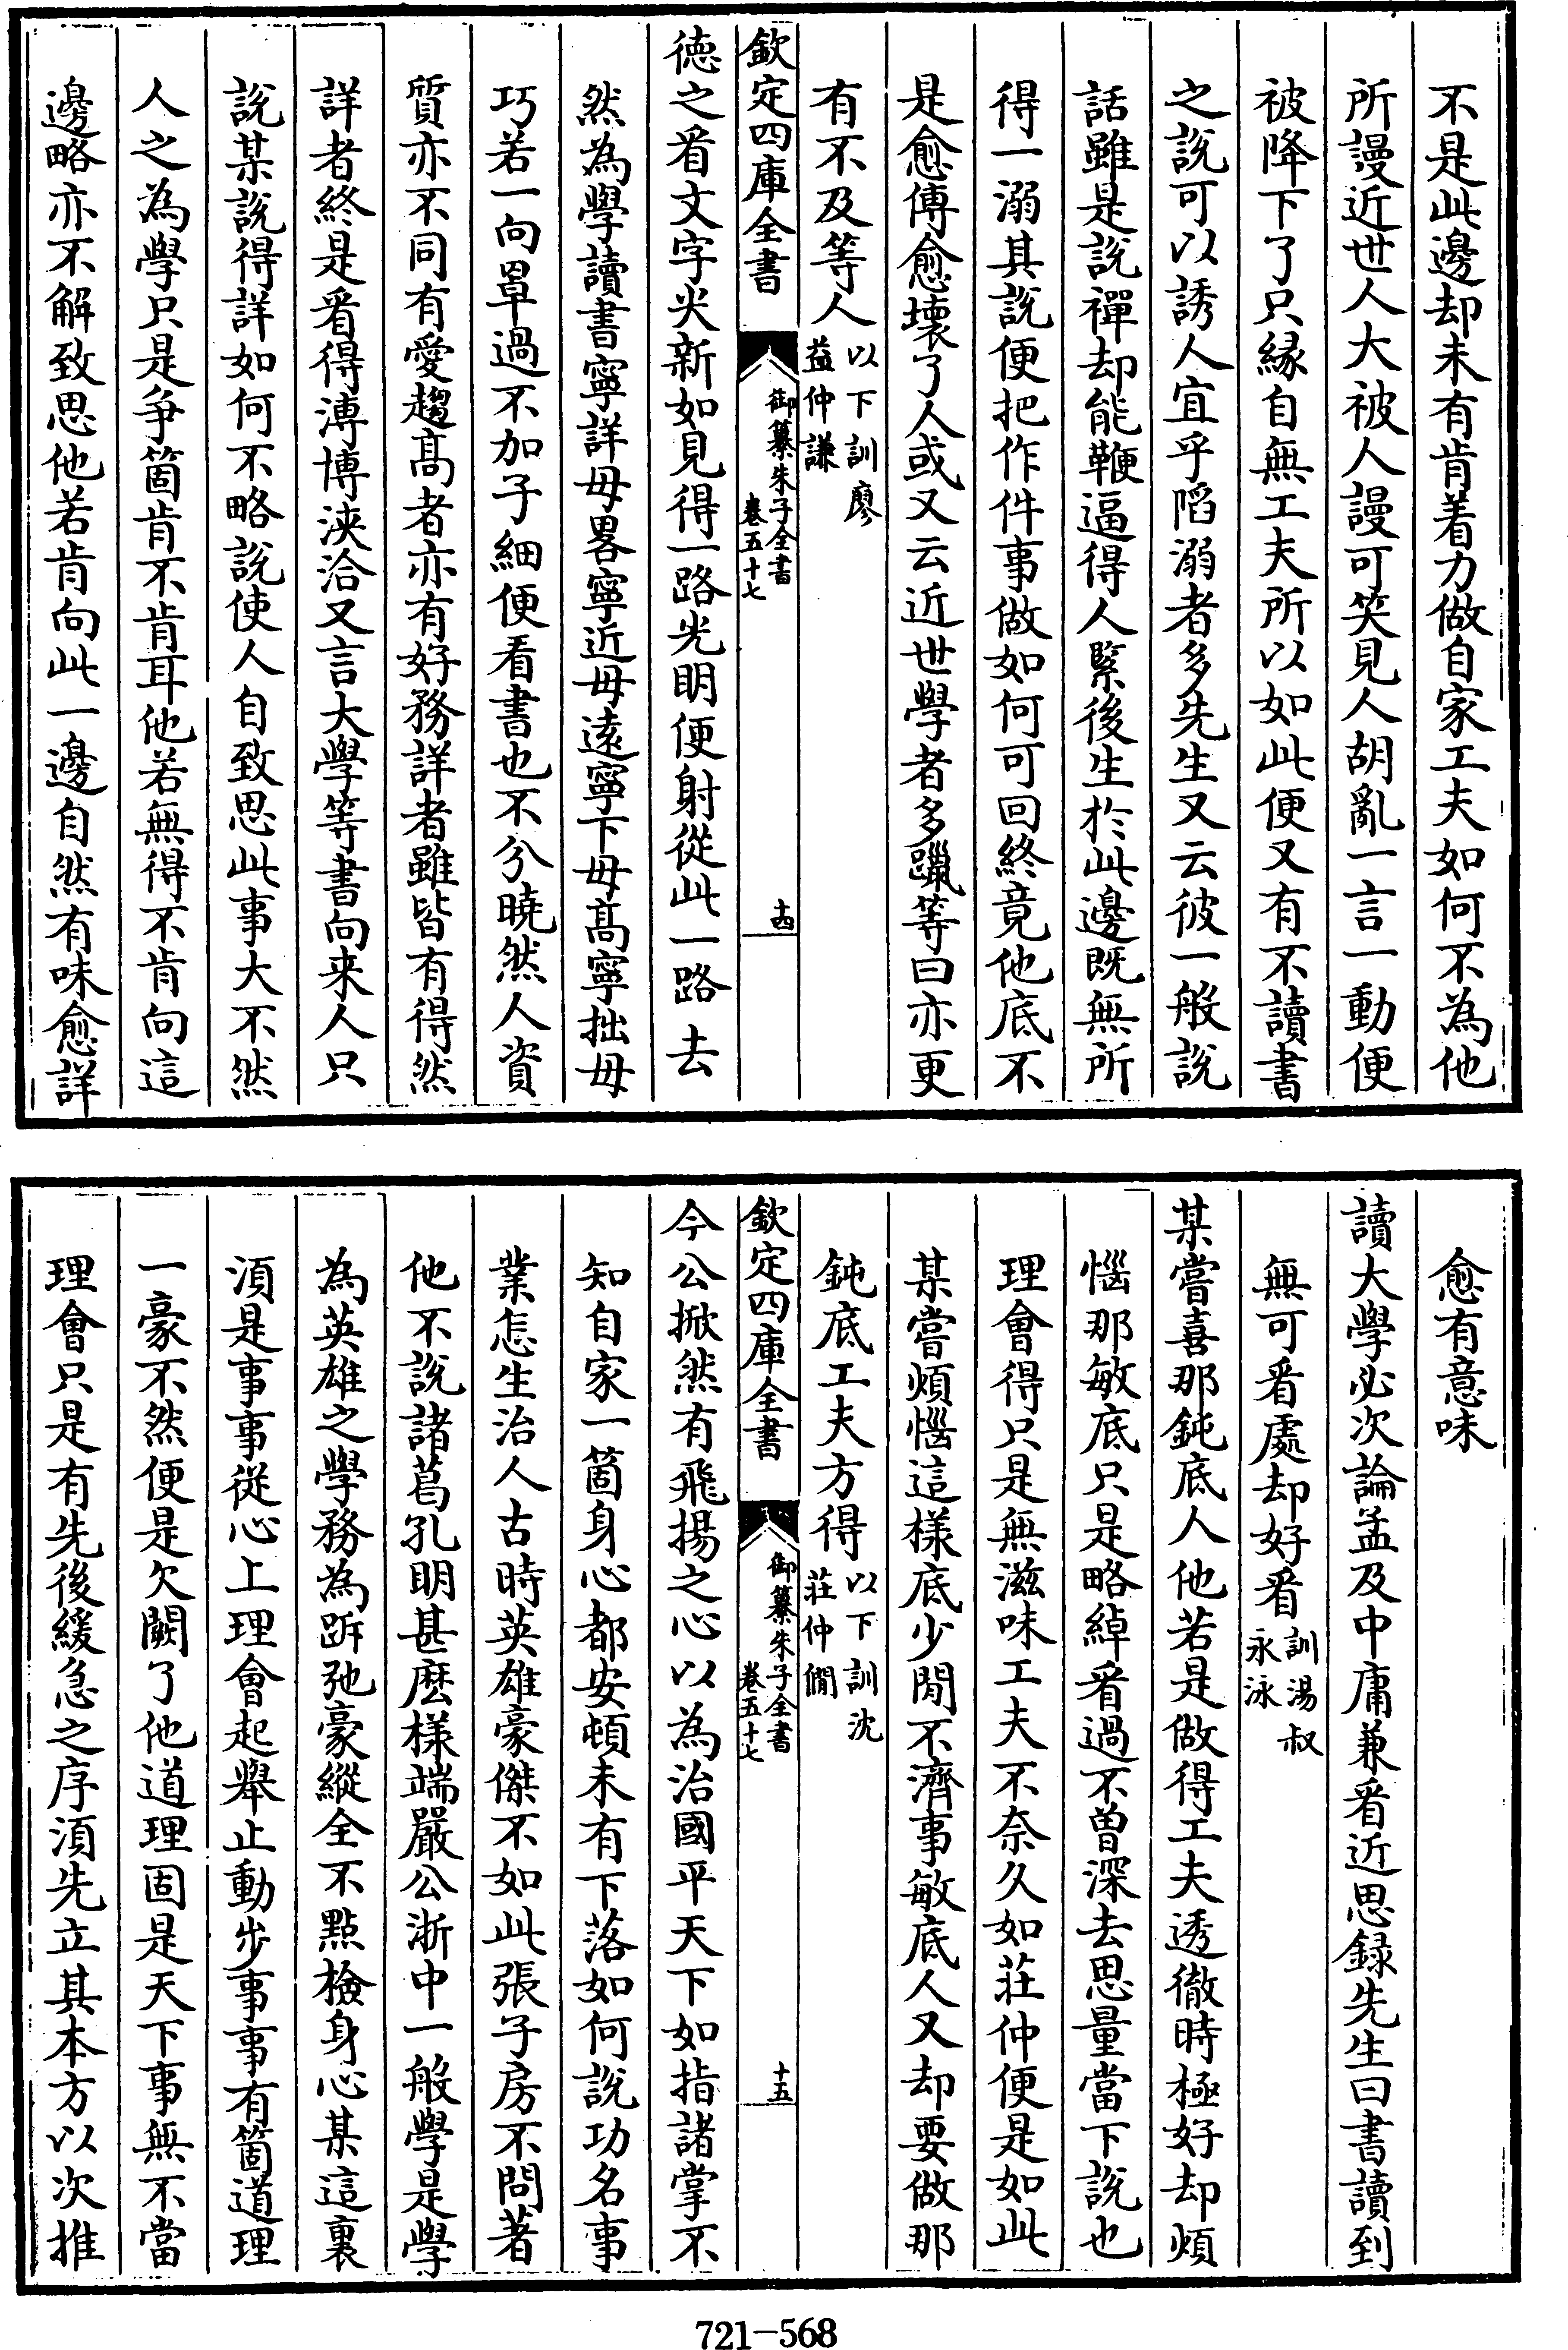 不是此邊却未有肯着力做自家工夫如何不為他
所謾近世人大被人謾可笑見人胡亂一言一動便
被降下了只緣自無工夫所以如此便又有不讀書
之說可以誘人宜乎陷溺者多先生又云彼一般說
話雖是說禪却能鞭逼得人緊後生於此邊既無所
得一溺其說便把作件事做如何可回終竟他底不
是愈傳愈壞了人或又云近世學者多躐等曰亦更
有不及等人以下訓廖
益仲謙
欽定四庫全書
御纂朱子全書
卷五十七
十四
德之看文字尖新如見得一路光明便射從此一路去
然為學讀書寧詳毋畧寧近毋遠寧下毋髙寧拙毋
巧若一向罩過不加子細便看書也不分曉然人資
質亦不同有愛趨髙者亦有好務詳者雖皆有得然
詳者終是看得溥博浹洽又言大學等書向来人只
說某說得詳如何不略說使人自致思此事大不然
人之為學只是爭箇肯不肯耳他若無得不肯向這
邊略亦不解致思他若肯向此一邊自然有味愈詳
愈有意味
讀大學必次論孟及中庸兼看近思録先生曰書讀到
無可看處却好看訓湯叔
永泳
某嘗喜那鈍底人他若是做得工夫透徹時極好却煩
惱那敏底只是略綽看過不曽深去思量當下說也
理會得只是無滋味工夫不奈久如莊仲便是如此
某嘗煩惱這様底少間不濟事敏底人又却要做那
鈍底工夫方得以下訓沈
莊仲僩
欽定四庫全書
御纂朱子全書
卷五十七
十五
今公掀然有飛揚之心以為治國平天下如指諸掌不
知自家一箇身心都安頓未有下落如何說功名事
業怎生治人古時英雄豪傑不如此張子房不問著
他不說諸葛孔明甚麽様端嚴公浙中一般學是學
為英雄之學務為跅弛豪縱全不點檢身心某這裏
湏是事事從心上理會起舉止動歩事事有箇道理
一豪不然便是欠闕了他道理固是天下事無不當
理會只是有先後緩急之序湏先立其本方以次推
721-568